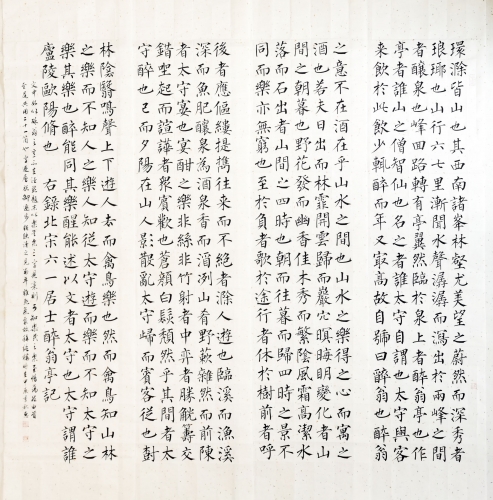 環滁皆山也其西南諸峯林壑尤美望之蔚然而深秀者
琅琊也山行六七里漸聞水聲潺潺而瀉出於兩峰之間
者釀泉也峰回路轉有亭翼然臨於泉上者醉翁亭也作
亭者誰山之僧智仙也名之者誰太守自謂也太守與客
來飲於此飲少輒醉而年又最高故自號曰醉翁也醉翁
之意不在酒在乎山水之間也山水之樂得之心而寓之
酒也若夫日出而林霏開雲歸而巖穴暝晦明變化者山
間之朝暮也野花發而幽香佳木秀而繁陰風霜高潔水
落而石出者山間之四時也朝而往暮而歸四時之景不
同而樂亦無窮也至於負者歌於途行者休於樹前者呼
後者應傴僂提攜往來而不絕者滁人遊也臨溪而漁溪
深而魚肥釀泉為酒泉香而酒洌山肴野蔌雜然而前陳
者太守宴也宴酣之樂非絲非竹射者中弈者勝觥籌交
錯坐起而諠譁者衆賓歡也蒼顏白髮頹然乎其間者太
守醉也已而夕陽在山人影散亂太守歸而賓客從也樹
林陰翳鳴聲上下遊人去而禽鳥樂也然而禽鳥知山林
之樂而不知人之樂人知從太守遊而樂而不知太守之
樂其樂也醉能同其樂醒能述以文者太守也太守謂誰
廬陵歐陽脩也 右錄北宋六一居士醉翁亭記